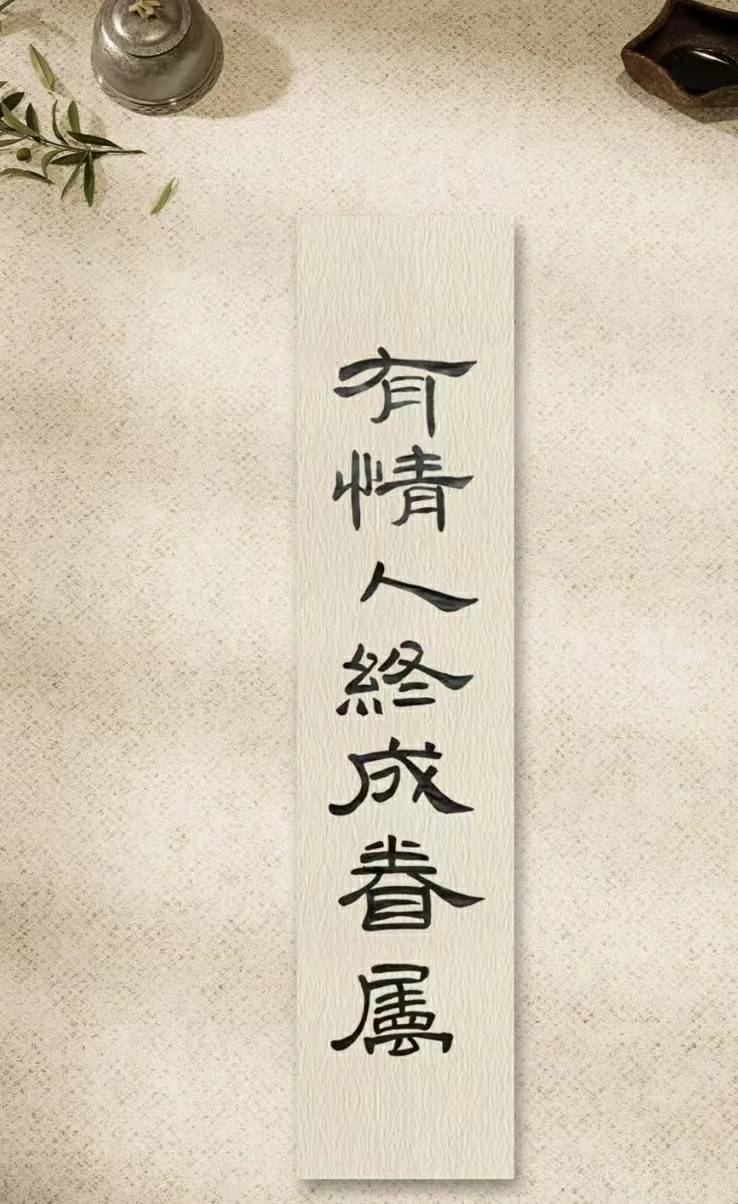 有情人終成眷属